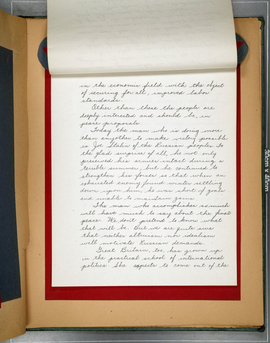 in the economic field with the object
of securing for all, improved labor
standards.
Other than these the people are
deeply interested and should be, in
peace proposals.
Today the man who is doing more
than any other to make victory possible
is Joe Stalin of the Russian peoples. To
the glad surprise of all, he not only
preserved his armies intact during a
terrible summer, but he continued to
strengthen his forces so that when an
exhausted enemy found winter settling
down upon him, he was short of goals
and unable to maintain gains.
The man who accomplishes so much
will have much to say about the final
peace. We don't pretend to know what
that will be. But we are quite sure
that neither altruism nor idealism
will motivate Russian demands.
Great Britain, too, has grown up
in the practical school of international
politics. She expects to come out of the
30cm x 45cm